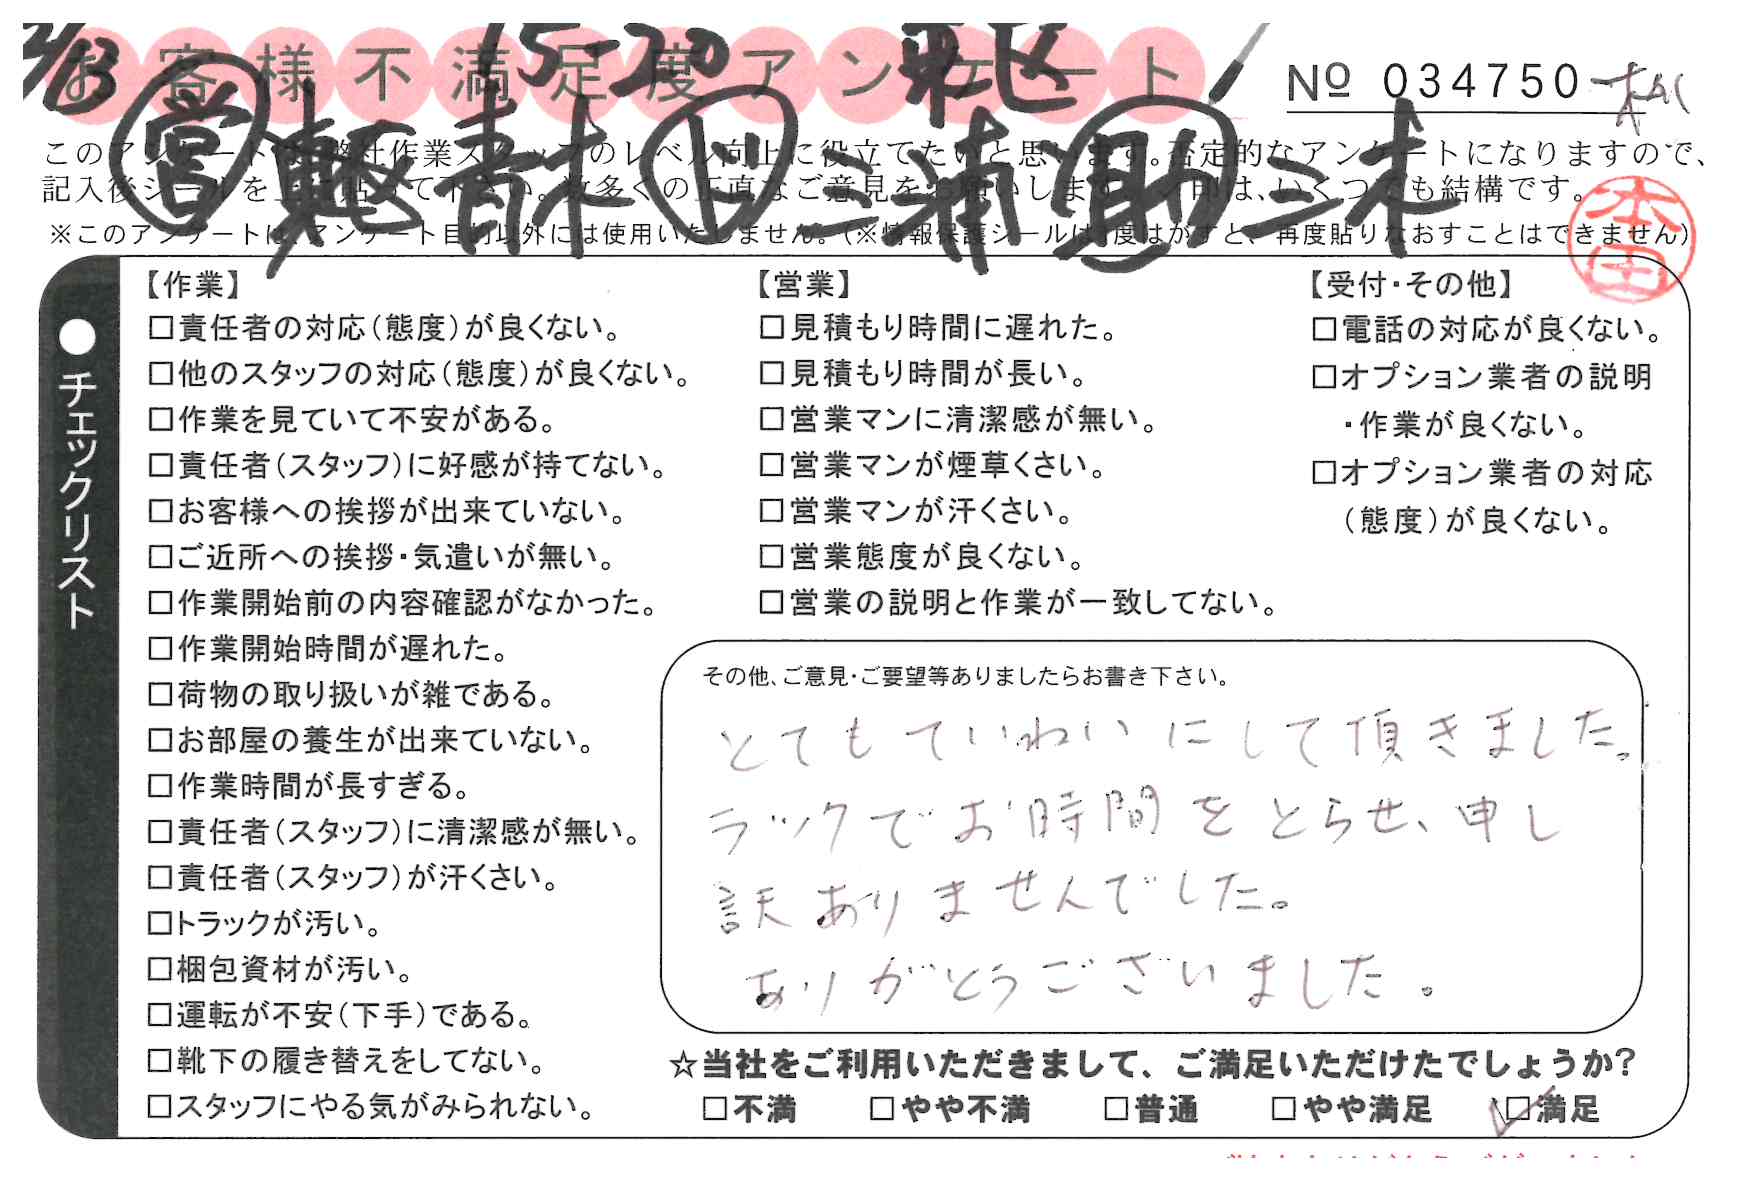 お客様不満足度アンケート
15-20 東区
№ 034750
このアンケートは、弊社作業スタッフのレベル向上に役立てたいと思います。否定的なアンケートになりますので、
記入後シールを上に貼って下さい。数多くの正直なご意見をお願いします。レ印は、いくつでも結構です。
※このアンケートは、アンケート目的以外には使用いたしません。(※情報保護シールは1度はがすと、再度貼りなおすことはできません)
営 青木 ド 三浦 助 三木
本田
●チェックリスト
【作業】
□責任者の対応(態度)が良くない。
□他のスタッフの対応(態度)が良くない。
□作業を見ていて不安がある。
□責任者(スタッフ)に好感が持てない。
□お客様への挨拶が出来ていない。
□ご近所への挨拶・気遣いが無い。
□作業開始前の内容確認がなかった。
□作業開始時間が遅れた。
□荷物の取り扱いが雑である。
□お部屋の養生が出来ていない。
□作業時間が長すぎる。
□責任者(スタッフ)に清潔感が無い。
□責任者(スタッフ)が汗くさい。
□トラックが汚い。
□梱包資材が汚い。
□運転が不安(下手)である。
□靴下の履き替えをしてない。
□スタッフにやる気がみられない。
【営業】
□見積もり時間に遅れた。
□見積もり時間が長い。
□営業マンに清潔感が無い。
□営業マンが煙草くさい。
□営業マンが汗くさい。
□営業態度が良くない。
□営業の説明と作業が一致してない。
【受付・その他】
□電話の対応が良くない。
□オプション業者の説明
・作業が良くない。
□オプション業者の対応
(態度)が良くない。
その他、ご意見・ご要望等ありましたらお書き下さい。
とてもていねいにして頂きました。
ラックでお時間をとらせ、申し
訳ありませんでした。
ありがとうございました。
☆当社をご利用いただきまして、ご満足いただけたでしょうか?
□不満 □やや不満 □普通 □やや満足 □満足